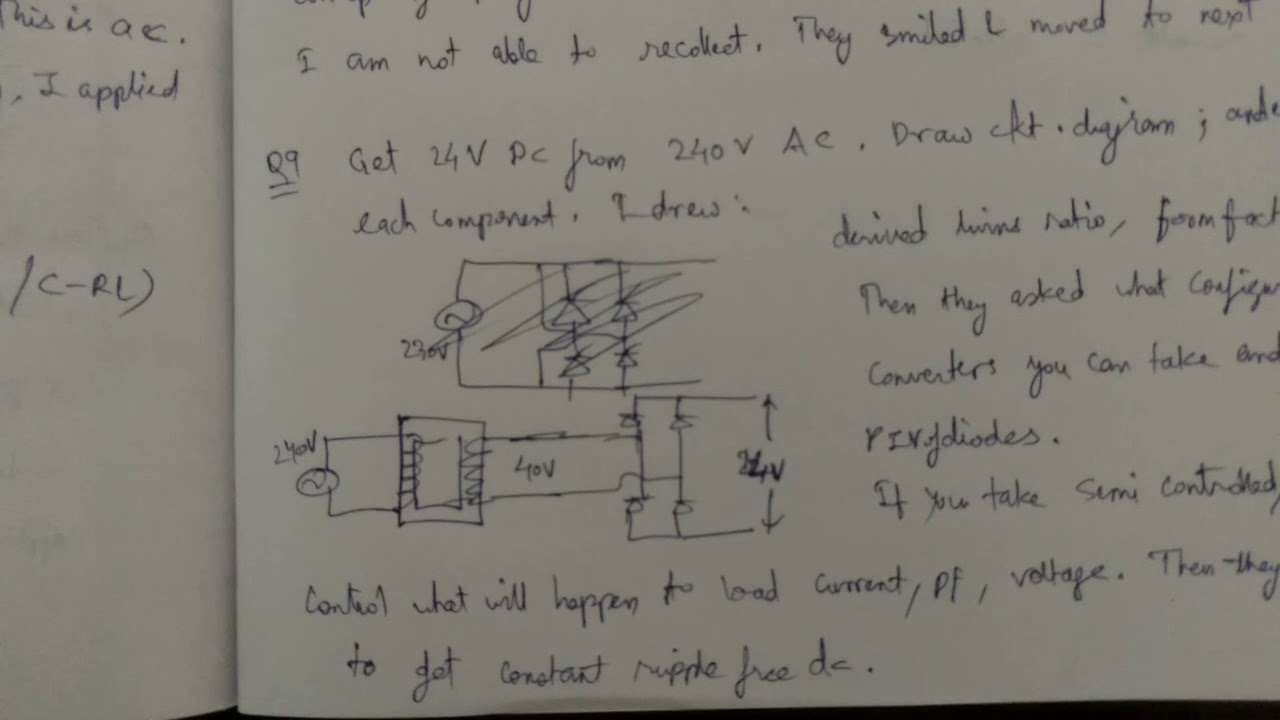 This is ac.
, I applied
/C-RL)
I am not able to recollect. They smiled & moved to next
Q9 Get 24V DC from 240V AC. Draw ckt. diagram ; and
each component. I drew :
derived turns ratio, form fact
Then they asked what configur
230V
Converters you can take and
240V
40V
24V
PIV of diodes.
If you take semi controlled,
Control what will happen to load current, pf, voltage. Then they
to get constant ripple free dc.